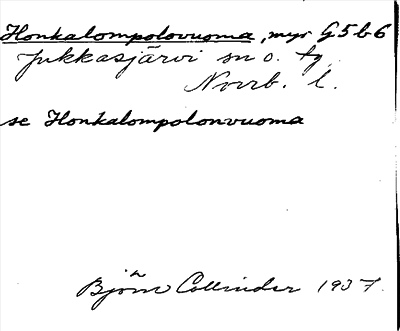 Honkalompolovuoma, myr G5b6
Jukkasjärvi sn o. tg
Norrb. l.
se Honkalompolonvuoma
Björn Collinder 1937.